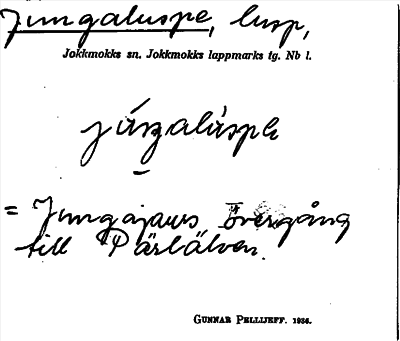 Jungaluspe, lusp,
Jokkmokks sn. Jokkmokks lappmarks tg. Nb l.
= Jungajaurs övergång
till Pärlälven.
GUNNAR PELLIJEFF. 1936.